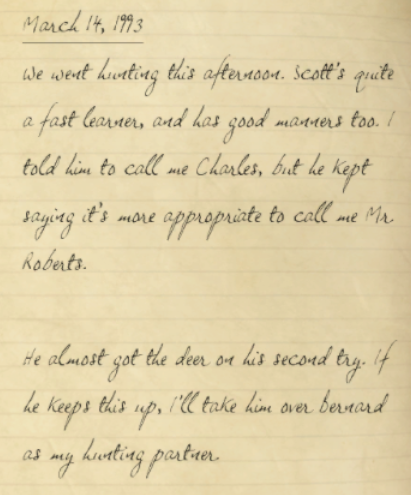 March 14, 1993
We went hunting this afternoon. Scott's quite
a fast learner, and has good manners too. I
told him to call me Charles, but he kept
saying it's more appropriate to call me Mr.
Roberts.
He almost got the deer on his second try. If
he keeps this up, I'll take him over Bernard
as my hunting partner.